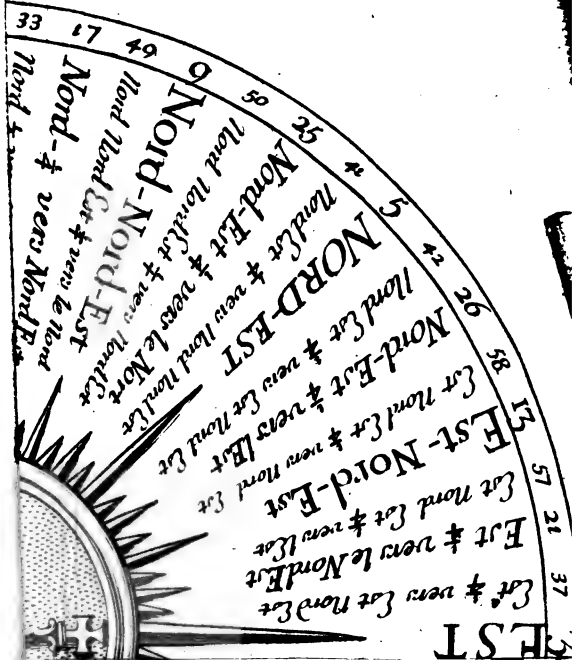 33 17 49 9 50 25 5 42 26 58 13 57 21 37
Nord ¼
Nord-¼ vers Nord Est
Nord Nord Est ¼ vers le Nord
Nord-Nord-Est
Nord NordEst ¼ vers NordEst
Nord-Est ¼ vers le Nort
NordEst ¼ vers Nord Nord Est
NORD-EST
Nord Est ¼ vers Est Nord Est
Nord-Est ¼ vers lEst
Est Nord Est ¼ vers Nord Est
Est-Nord-Est
Est Nord Est ¼ vers lEst
Est ¼ vers le NordEst
Est ¼ vers Est NordEst
EST